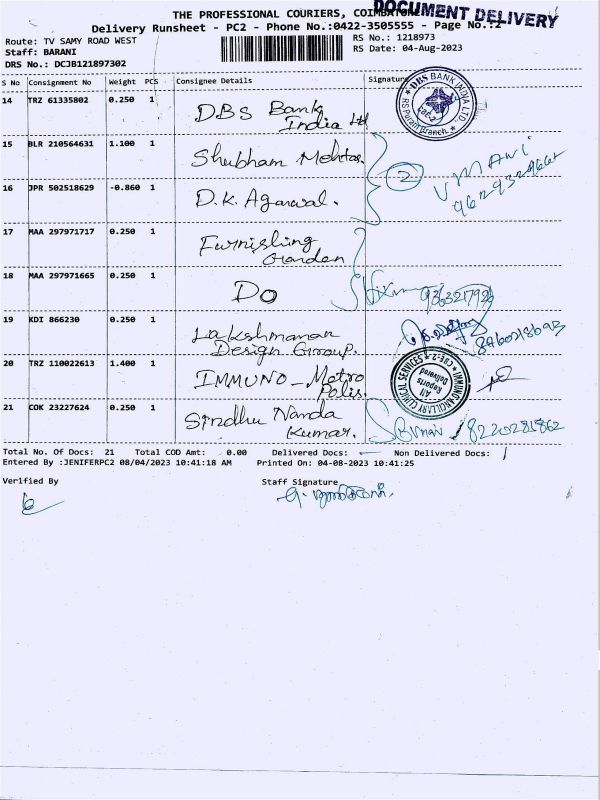 THE PROFESSIONAL COURIERS, COIMBATORE
DOCUMENT DELIVERY
Delivery Runsheet - PC2 - Phone No.:0422-3505555 - Page No.:2
Route: TV SAMY ROAD WEST
RS No.: 1218973
Staff: BARANI
RS Date: 04-Aug-2023
DRS No.: DCJB121897302
S No Consignment No Weight PCS Consignee Details Signature
14 TRZ 61335802 0.250 1 DBS Bank
India Ltd
DBS BANK INDIA LTD
RS Puram Branch
15 BLR 210564631 1.100 1 Shubham Mehtas.
2
V MANI
16 JPR 502518629 -0.860 1 D.K. Agarwal.
17 MAA 297971717 0.250 1 Furnishing
Garden
18 MAA 297971665 0.250 1 Do
19 KDI 866230 0.250 1 Lakshmanan
Design Group.
20 TRZ 110022613 1.400 1 IMMUNO - Metro
Polis.
IMMUNO ANCILLARY CLINICAL SERVICES
CBE-2
All
Reports
Delivered
21 COK 23227624 0.250 1 Sindhu Nanda
Kumar.
8220281862
Total No. Of Docs: 21 Total COD Amt: 0.00 Delivered Docs: Non Delivered Docs:
Entered By :JENIFERPC2 08/04/2023 10:41:18 AM Printed On: 04-08-2023 10:41:25
Verified By Staff Signature